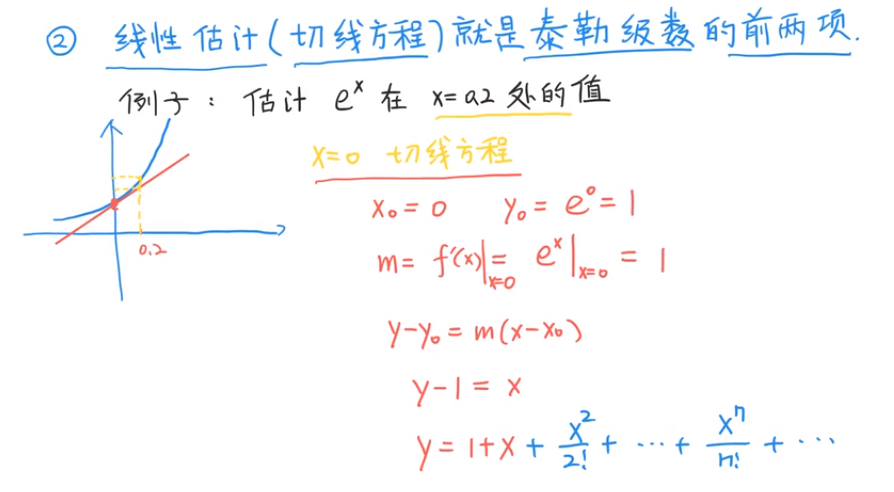 ② 线性估计(切线方程)就是泰勒级数的前两项.
例子：估计 e^x 在 x=0.2 处的值
x=0 切线方程
0.2
x₀ = 0 y₀ = e⁰ = 1
m = f'(x)|_{x=0} = e^x|_{x=0} = 1
y-y₀ = m(x-x₀)
y-1 = x
y = 1+x + x²/2! + ⋯ + xⁿ/n! + ⋯